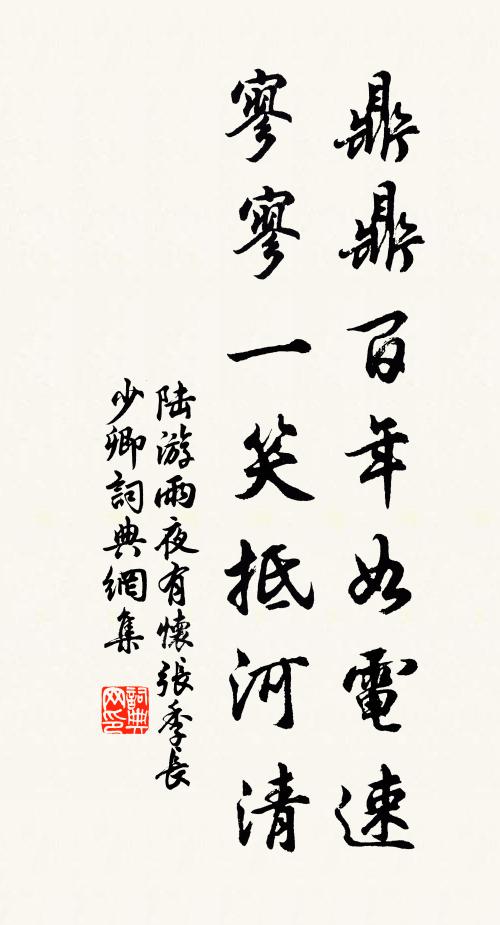 鼎鼎百年如電速
寥寥一笑抵河清
陆游雨夜有懷張季長
少卿詞典網集
詞典网印